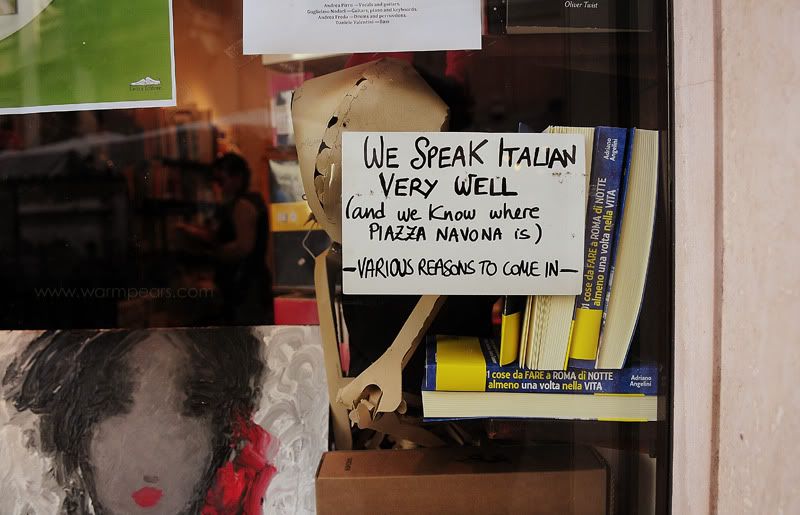 Andrea Pirro — Vocals and guitars.
Guglielmo Nodari — Guitars, piano and keyboards.
Andrea Freda — Drums and percussions.
Daniele Valentini — Bass
Oliver Twist
WE SPEAK ITALIAN
VERY WELL
(and we know where
PIAZZA NAVONA is)
—VARIOUS REASONS TO COME IN—
Adriano
Angelini
cose da FARE a ROMA di NOTTE
almeno una volta nella VITA
1 cose da FARE a ROMA di NOTTE
almeno una volta nella VITA
Adriano
Angelini
www.warmpears.com